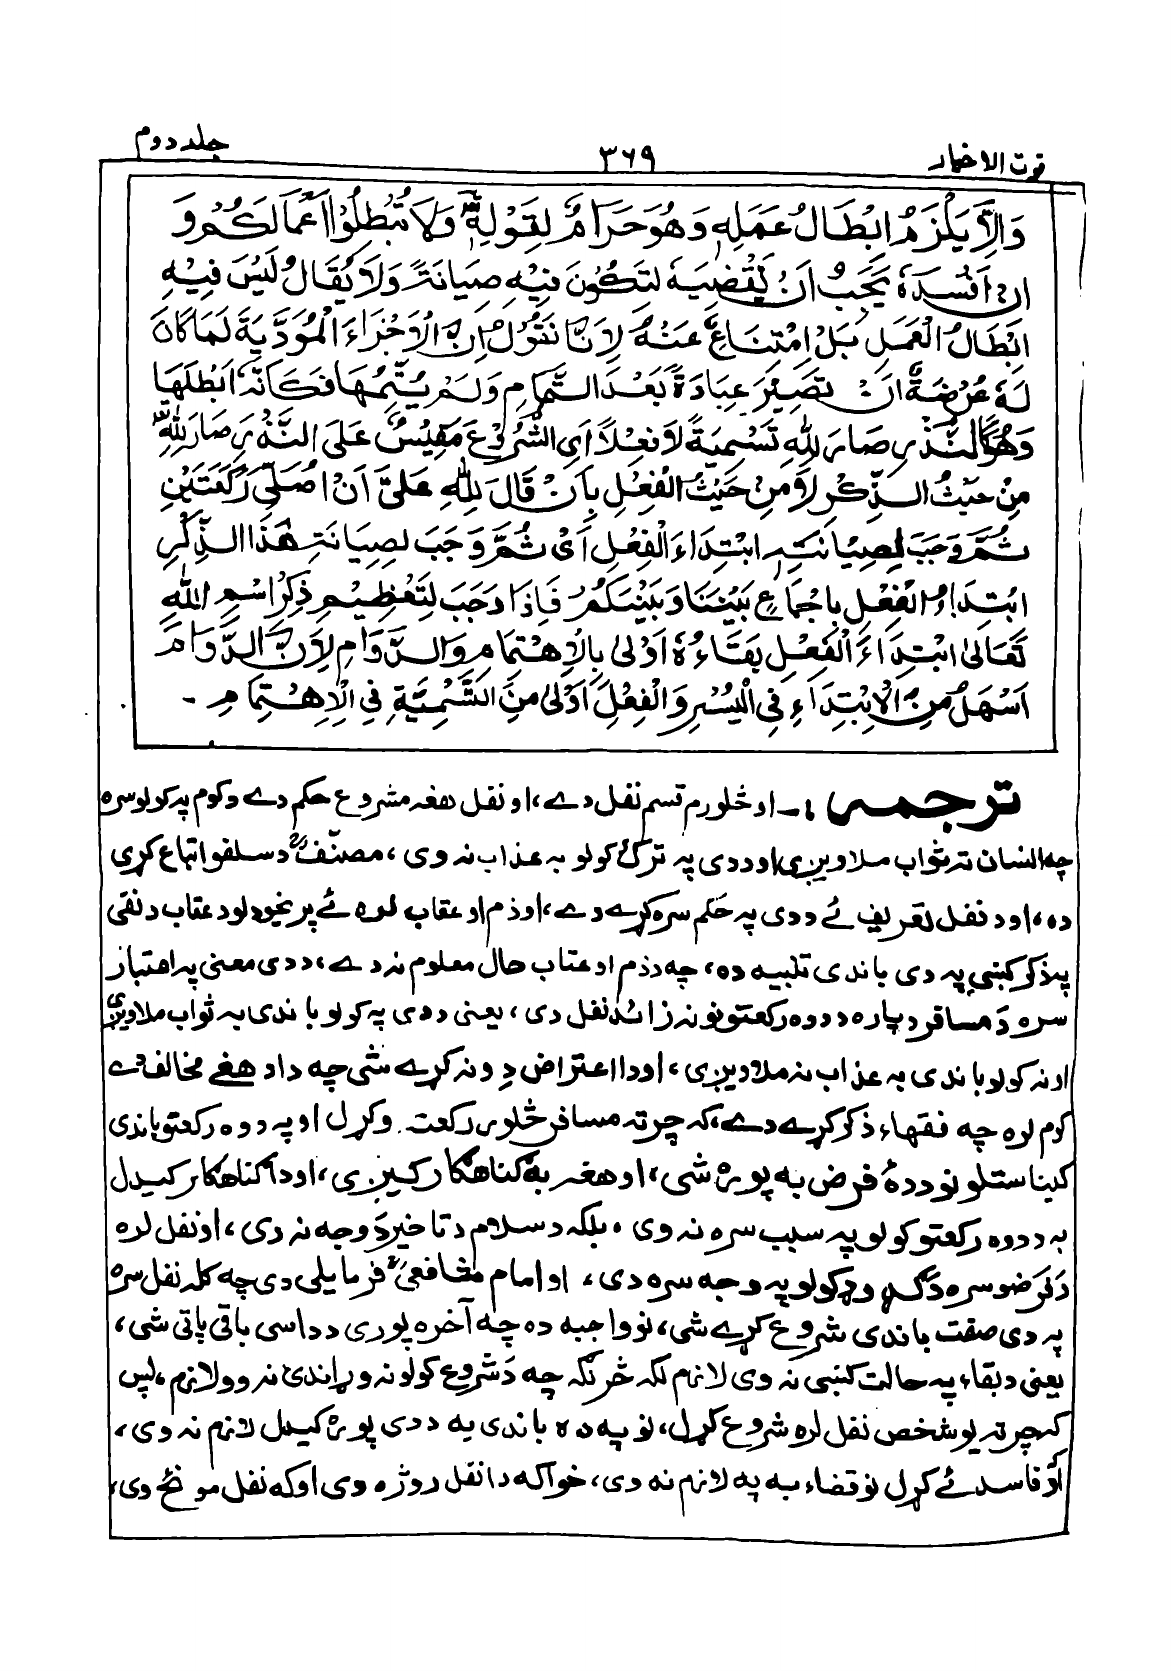 قوت الاخیار ۳۶۹ جلد دوم
وَاِلَّا يَلْزَمُ اِبْطَالُ عَمَلِهٖ وَهُوَ حَرَامٌ لِقَوْلِهٖ تَعَالٰى وَلَا تُبْطِلُوْا اَعْمَالَكُمْ وَ
اِنْ اَفْسَدَهٗ يَجِبُ اَنْ يَّقْضِيَهٗ لِتَكُوْنَ فِيْهِ صِيَانَةً وَلَا يُقَالُ لَيْسَ فِيْهِ
اِبْطَالُ الْعَمَلِ بَلْ اِمْتِنَاعٌ عَنْهُ لِاَنَّا نَقُوْلُ اِنَّ الْاَجْزَاءَ الْمُؤَدَّيَةَ لَمَّا كَانَ
لَهٗ عُرْضَةٌ اَنْ تَصِيْرَ عِبَادَةً بَعْدَ التَّمَامِ وَلَمْ يُتِمَّهَا فَكَاَنَّهٗ اَبْطَلَهَا
وَهُوَ كَالنَّذْرِ صَارَ لِلّٰهِ تَسْمِيَةً لَا فِعْلًا اَيِ الشُّرُوْعُ مَقِيْسٌ عَلَى النَّذْرِ صَارَ لِلّٰهِ
مِنْ حَيْثُ الذِّكْرِ لَا مِنْ حَيْثُ الْفِعْلِ بِاَنْ قَالَ لِلّٰهِ عَلَيَّ اَنْ اُصَلِّيَ رَكْعَتَيْنِ
ثُمَّ وَجَبَ لِصِيَانَتِهٖ ابْتِدَاءَ الْفِعْلِ اَيْ ثُمَّ وَجَبَ لِصِيَانَتِهِ هٰذَا الذِّكْرِ
ابْتِدَاءُ الْفِعْلِ بِاِجْمَاعٍ بَيْنَنَا وَبَيْنَكُمْ فَاِذَا وَجَبَ لِتَعْظِيْمِ ذِكْرِ اسْمِ اللّٰهِ
تَعَالٰى ابْتِدَاءَ الْفِعْلِ بَقَاءُهٗ اَوْلٰى بِالْاِهْتِمَامِ وَالدَّوَامِ لِاَنَّ الدَّوَامَ
اَسْهَلُ مِنَ الْاِبْتِدَاءِ فِي الْيُسْرِ وَالْفِعْلَ اَوْلٰى مِنَ التَّسْمِيَّةِ فِي الْاِهْتِمَامِ -
ترجمہ :- او څلورم قسم نفل دے، او نفل هغه مشروع حکم دے د کوم په کولو سره
چه انسان ته ثواب ملاویږی او د دی په ترک کولو به عذاب نه وی، مصنفؒ د سلفو اتباع کړی
ده، او د نفل تعریف ئے د دی په حکم سره کړے دے، او ذم او عقاب لره ئے پریخودلو د عقاب د نفی
په ذکر کښی په دی باندی تنبیه ده، چه د ذم او عتاب حال معلوم نه دے، د دی معنی په اعتبار
سره د مسافر د پاره د دوه رکعتو نو نه زائد نفل دی، یعنی د دی په کولو باندی به ثواب ملاویږی
او نه کولو باندی به عذاب نه ملاویږی، او دا اعتراض دِ ونه کړے شی چه دا د هغے مخالف دے
کوم لره چه فقهاء ذکر کړے دے، که چرته مسافر څلور رکعت وکړل او په دوه رکعتو باندی
کیناستلو نو د دهٔ فرض به پوره شی، او هغه به گناهگار کیږی، او دا گناهگار کیدل
به د دوه رکعتو کولو په سبب سره نه وی، بلکه د سلام د تاخیر د وجه نه دی، او نفل لره
د فرضو سره د گډ وډ کولو په وجه سره دی، او امام شافعیؒ فرمایلی دی چه کله نفل سره
په دی صفت باندی شروع کړے شی، نو واجبه ده چه آخره پوری د داسی باقی پاتی شی،
یعنی د بقاء په حالت کښی نه وی لازم لکه څرنگه چه د شروع کولو نه وړاندی نه وو لازم، پس
که چرته یو شخص نفل لره شروع کړل، نو په ده باندی به د دی پوره کیدل لازم نه وی،
او فاسد ئے کړل نو قضاء به په لازم نه دی، خواکه دا نفل روژه وی او که نفل مونځ وی،